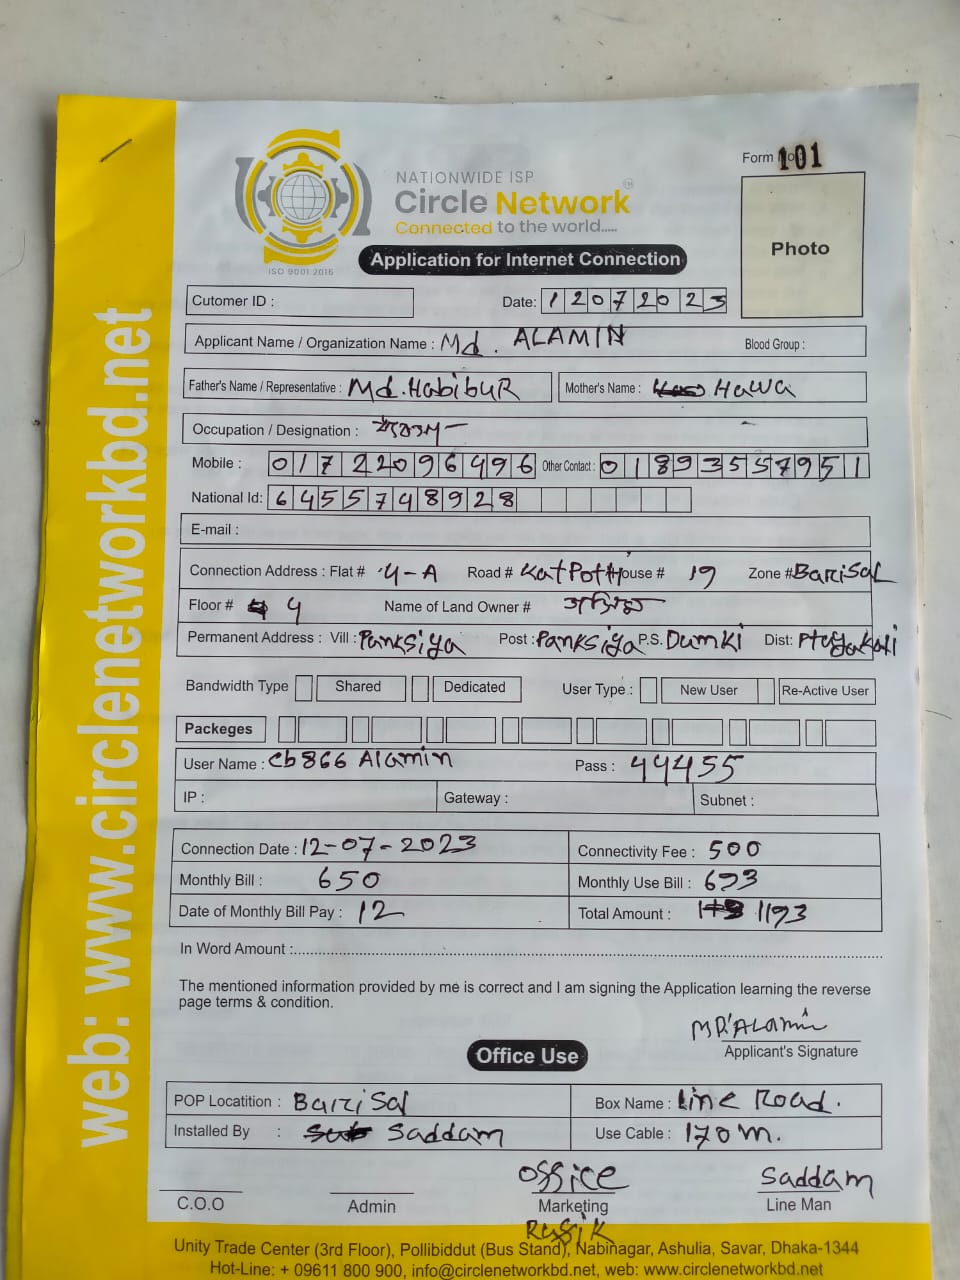 Form No 101
NATIONWIDE ISP
Circle Network
Connected to the world.....
ISO 9001:2015
Application for Internet Connection
Photo
Cutomer ID :
Date: 12072023
Applicant Name / Organization Name : Md. ALAMIN Blood Group :
Father's Name / Representative : Md. HabibuR Mother's Name : Hawa
Occupation / Designation :
Mobile : 01722096496 Other Contact : 01893557951
National Id: 6455748928
E-mail :
Connection Address : Flat # 4-A Road # KatPotti House # 19 Zone # BariSaL
Floor # 4 Name of Land Owner #
Permanent Address : Vill : Panksiya Post : Panksiya P.S. Dumki Dist:
Bandwidth Type Shared Dedicated User Type : New User Re-Active User
Packeges
User Name : cb866 Alamin Pass : 44455
IP : Gateway : Subnet :
Connection Date : 12-07-2023 Connectivity Fee : 500
Monthly Bill : 650 Monthly Use Bill : 693
Date of Monthly Bill Pay : 12 Total Amount : 1193
In Word Amount :
The mentioned information provided by me is correct and I am signing the Application learning the reverse
page terms & condition.
MD. ALamin
Applicant's Signature
Office Use
POP Locatition : BariSal Box Name : Line Road.
Installed By : Saddam Use Cable : 170m.
office Saddam
C.O.O Admin Marketing Line Man
Unity Trade Center (3rd Floor), Pollibiddut (Bus Stand), Nabinagar, Ashulia, Savar, Dhaka-1344
Hot-Line: + 09611 800 900, info@circlenetworkbd.net, web: www.circlenetworkbd.net
web: www.circlenetworkbd.net